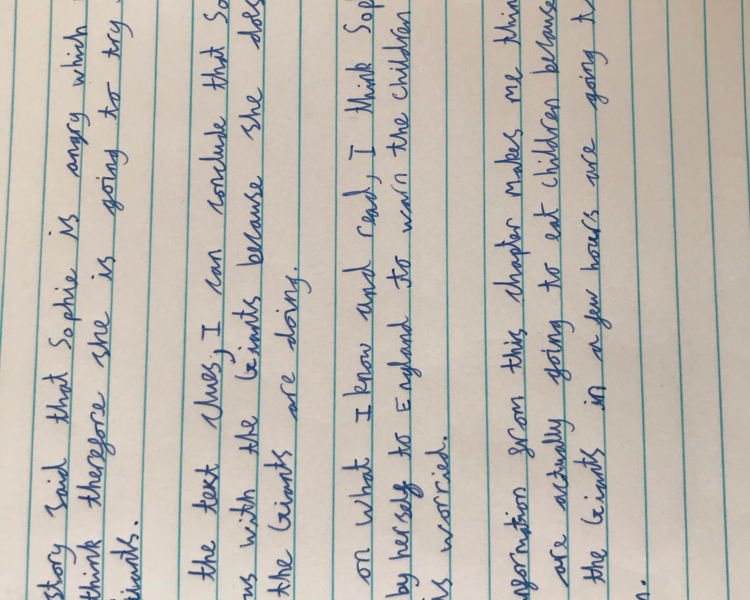 story said that Sophie is angry which
think therefore she is going to try
Giants.
the text clues, I can conclude that So
us with the Giants because she does
the Giants are doing.
on what I know and read, I think Sop
by herself to England to warn the children
is worried.
nformation from this chapter makes me thin
are actually going to eat children because
the Giants in a few hours are going t
n.